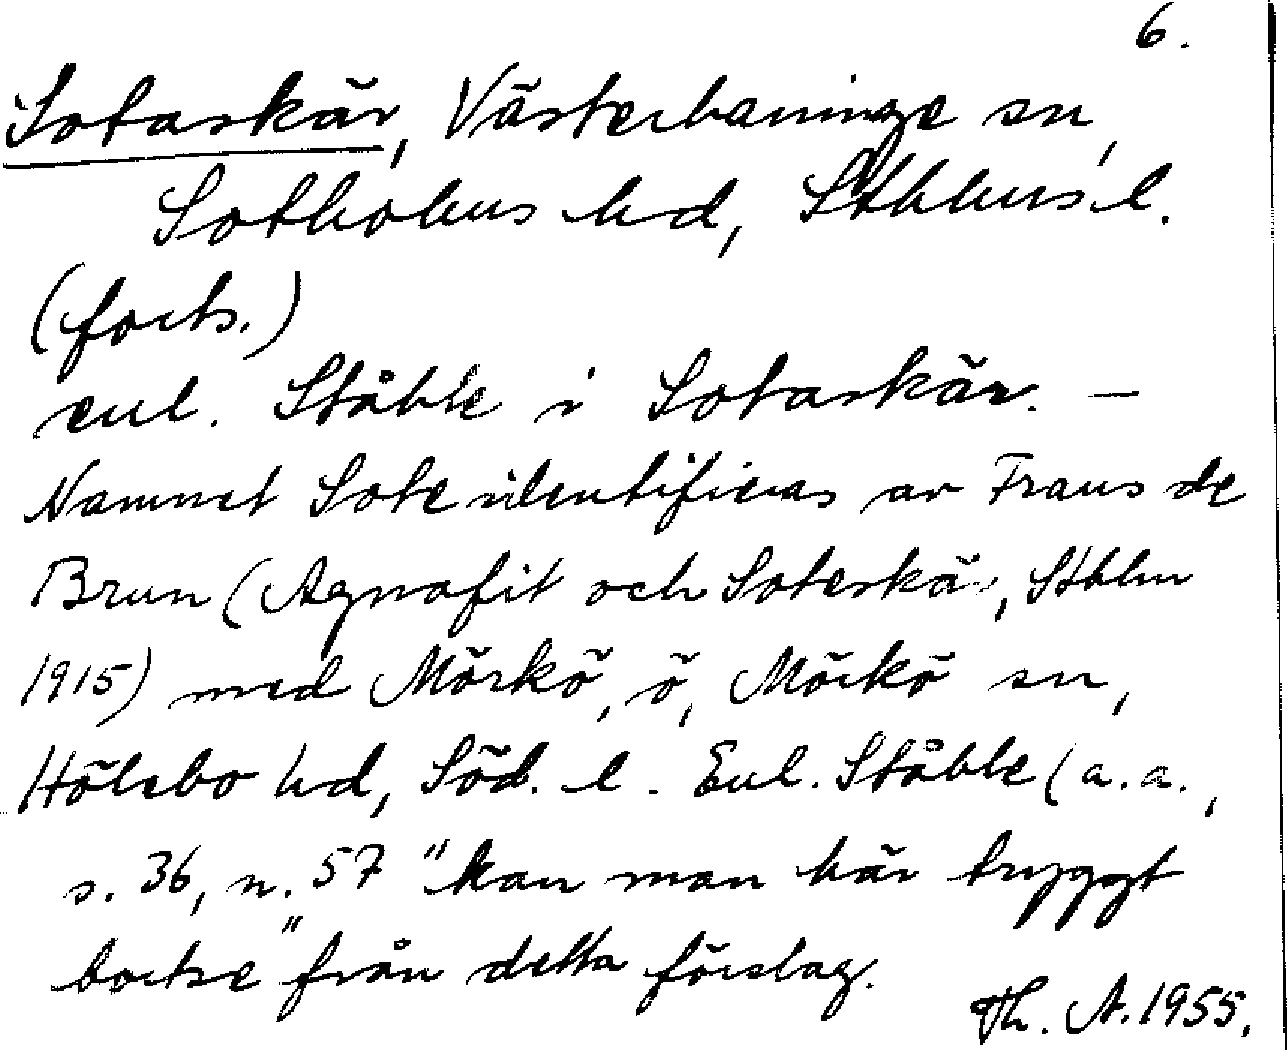 6.
Sotaskär, Västerhaninge sn,
Sotholms hd, Sthlms l.
(forts.)
enl. Ståhle i Sotaskär. –
Namnet Sote identifieras av Frans de
Brun (Agnafit och Soteskär, Sthlm
1915) med Mörkö, ö, Mörkö sn,
Hölebo hd, Söd. l. Enl. Ståhle (a.a.,
s. 36, n. 57 "kan man här tryggt
bortse" från detta förslag.
Th. A. 1955.